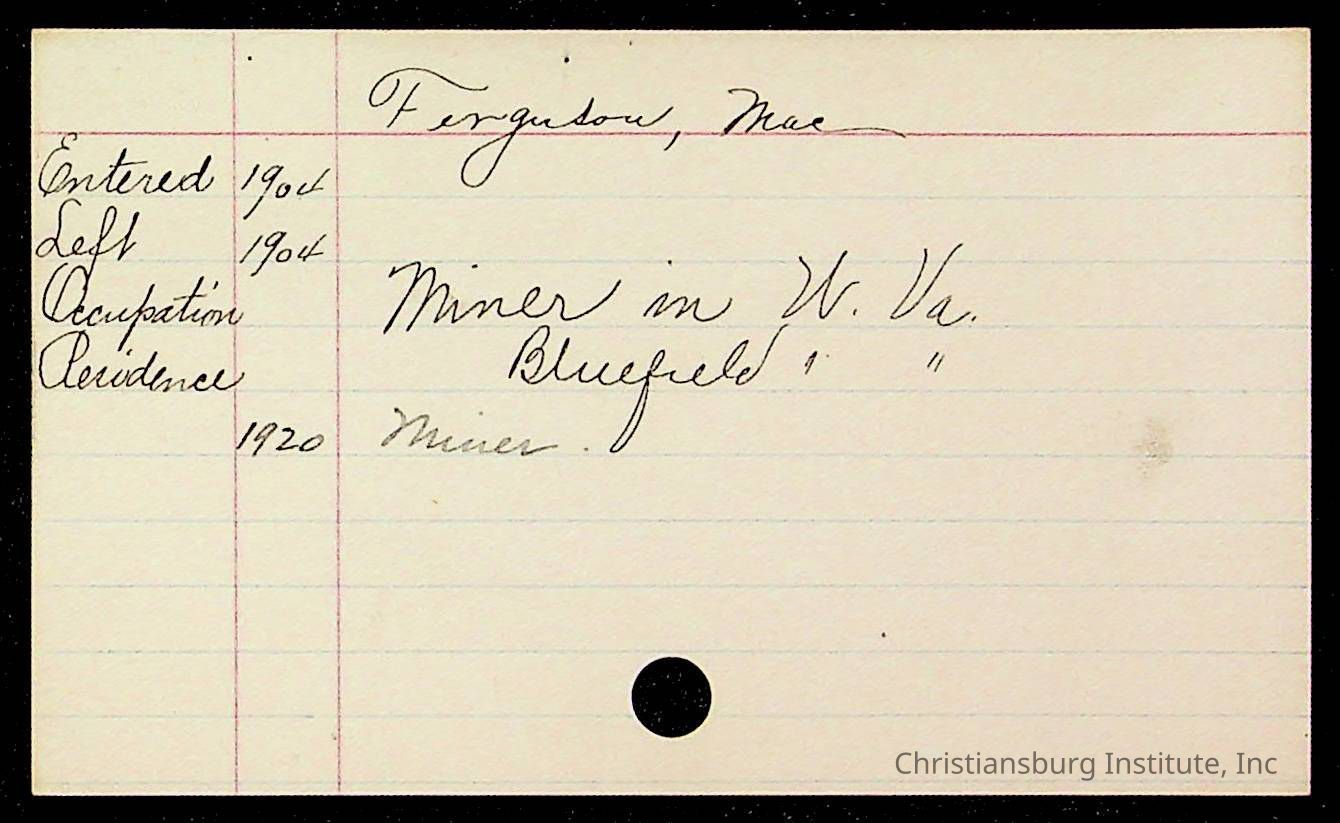 Ferguson, Mac
Entered 1904
Left 1904
Occupation Miner in W. Va.
Residence Bluefield " "
1920 Miner.
Christiansburg Institute, Inc